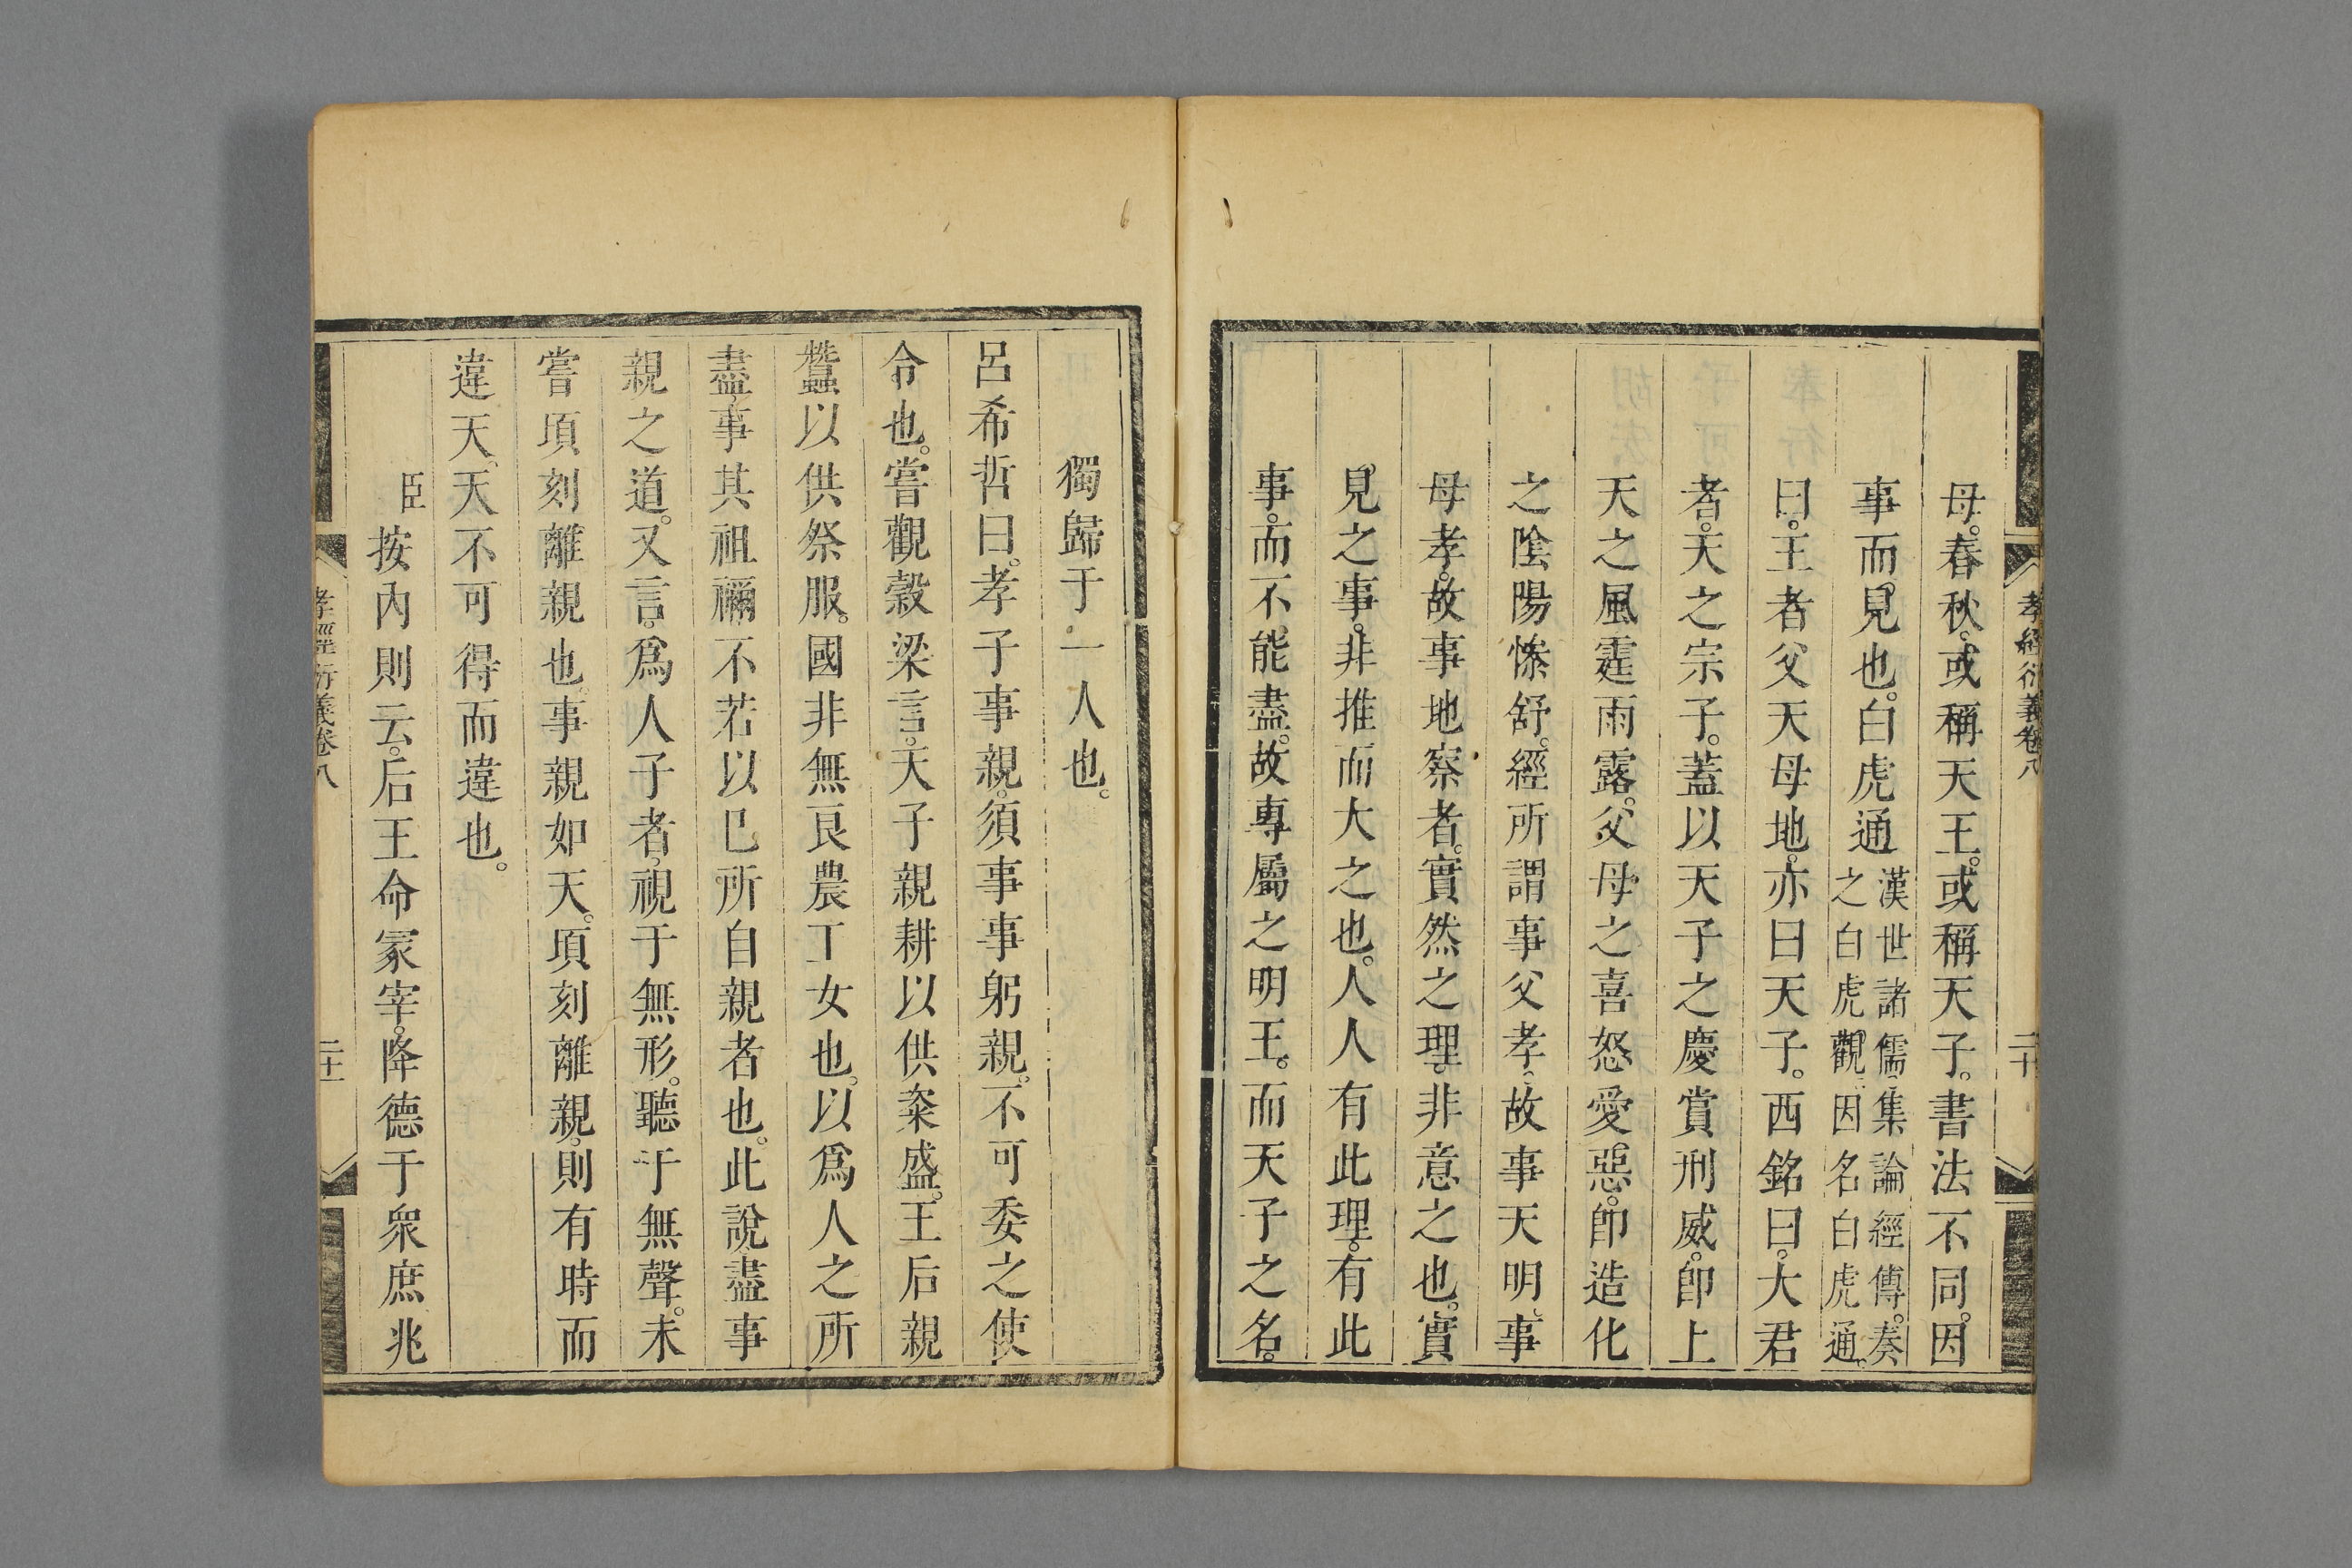 孝經衍義卷八
二十
母。春秋。或稱天王。或稱天子。書法不同。因
事而見也。白虎通漢世諸儒。集論經傳。奏之白虎觀。因名白虎通。
曰。王者父天母地。亦曰天子。西銘曰。大君
者。天之宗子。蓋以天子之慶賞刑威。卽上
天之風霆雨露。父母之喜怒愛惡。卽造化
之陰陽慘舒。經所謂事父孝。故事天明。事
母孝。故事地察者。實然之理。非意之也。實
見之事。非推而大之也。人人有此理。有此
事。而不能盡。故專屬之明王。而天子之名。
獨歸于一人也。
呂希哲曰。孝子事親。須事事躬親。不可委之使
令也。嘗觀穀梁言。天子親耕以供粢盛。王后親
蠶以供祭服。國非無良農工女也。以爲人之所
盡事其祖禰。不若以己所自親者也。此說盡事
親之道。又言。爲人子者。視于無形。聽于無聲。未
嘗頃刻離親也。事親如天。頃刻離親。則有時而
違天。天不可得而違也。
臣按內則云。后王命冢宰。降德于衆庶兆
孝經衍義卷八
二十一